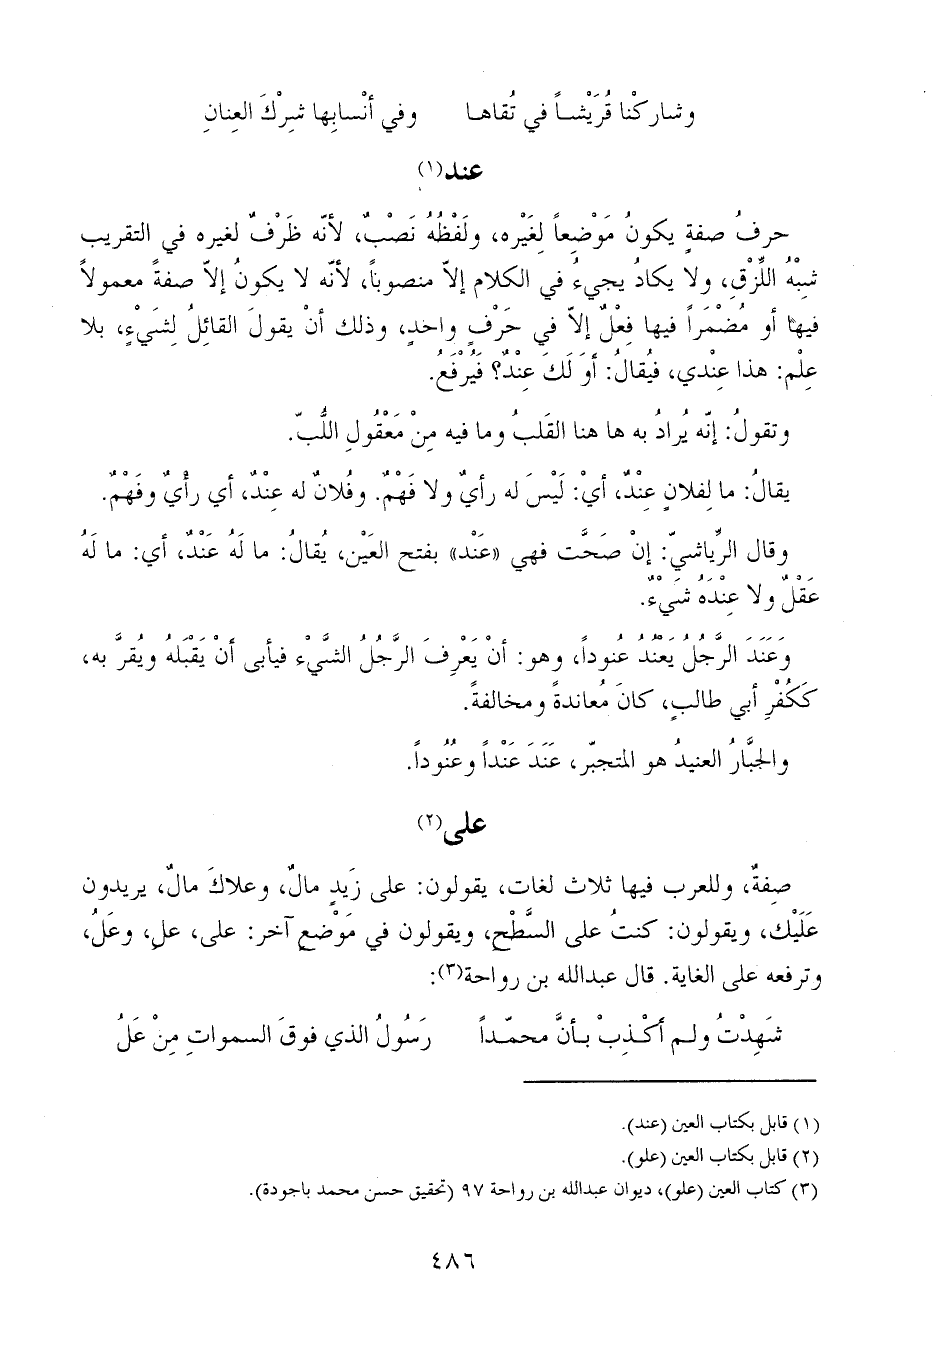 وشاركْنا قُرَيْشاً في تُقاها وفي أنْسابِها شِرْكَ العِنانِ
عند(١)
حرفُ صفةٍ يكونُ مَوْضِعاً لِغَيْره، ولَفْظُهُ نَصْبٌ، لأنّه ظَرْفٌ لغيره في التقريب
شِبْهُ اللِّزْقِ، ولا يكادُ يجيءُ في الكلام إلاّ منصوباً، لأنّه لا يكونُ إلاّ صفةً معمولاً
فيها أو مُضْمَراً فيها فِعْلٌ إلاّ في حَرْفٍ واحدٍ، وذلك أنْ يقولَ القائلُ لِشَيْءٍ، بلا
عِلْم: هذا عِنْدي، فيُقالُ: أوَ لَكَ عِنْدٌ؟ فَيُرْفَعُ.
وتقولُ: إنّه يُرادُ به ها هنا القَلبُ وما فيه مِنْ مَعْقُولِ اللُّبّ.
يقالُ: ما لفلانٍ عِنْدٌ، أيْ: لَيْسَ له رأيٌ ولا فَهْمٌ. وفُلانٌ له عِنْدٌ، أي رأْيٌ وفَهْمٌ.
وقال الرِّياشيّ: إنْ صَحَّت فهي «عَنْد» بفتح العَيْن، يُقالُ: ما لَهُ عَنْدٌ، أي: ما لَهُ
عَقْلٌ ولا عِنْدَهُ شَيْءٌ.
وَعَنَدَ الرَّجُلُ يَعْنُدُ عُنوداً، وهو: أنْ يَعْرِفَ الرَّجُلُ الشيْءَ فيأبى أنْ يَقْبَلهُ ويُقرَّ به،
كَكُفْرِ أبي طالبٍ، كانَ مُعاندةً ومخالفةً.
والجَبَّارُ العنيدُ هو المتجبّر، عَنَدَ عَنْداً وعُنُوداً.
على(٢)
صفةٌ، وللعرب فيها ثلاث لغات، يقولون: على زَيدٍ مالٌ، وعلاكَ مالٌ، يريدون
عَلَيْك، ويقولون: كنتُ على السَّطْحِ، ويقولون في مَوْضعٍ آخر: على، علِ، وعَلُ،
وترفعه على الغاية. قال عبدالله بن رواحة(٣):
شَهِدْتُ ولم أكْذِبْ بأنَّ محمّداً رَسُولُ الذي فوقَ السمواتِ مِنْ عَلُ
(١) قابل بكتاب العين (عند).
(٢) قابل بكتاب العين (علو).
(٣) كتاب العين (علو)، ديوان عبدالله بن رواحة ٩٧ (تحقيق حسن محمد باجودة).
٤٨٦